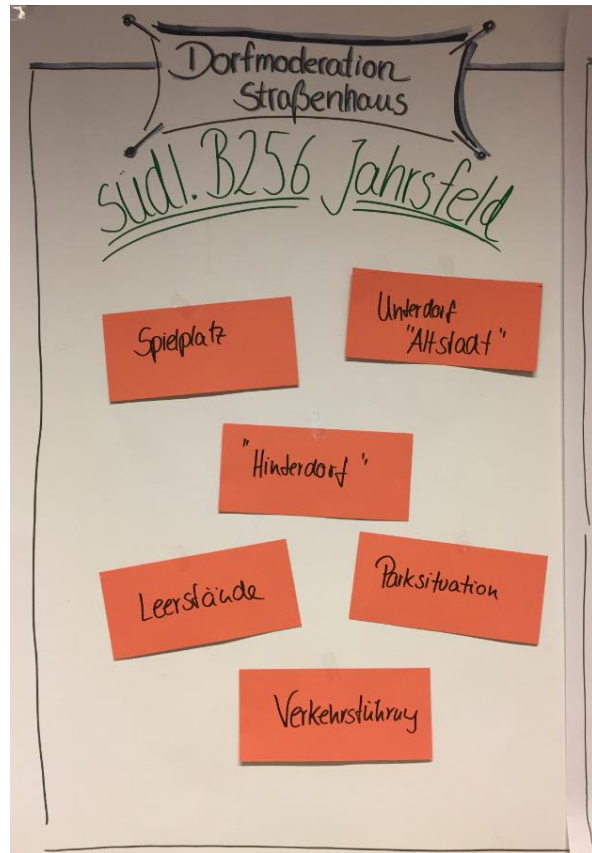 Dorfmoderation
Straßenhaus
südl. B256 Jahrsfeld
Spielplatz
Unterdorf
"Altstadt"
"Hinterdorf"
Leerstände
Parksituation
Verkehrsführung